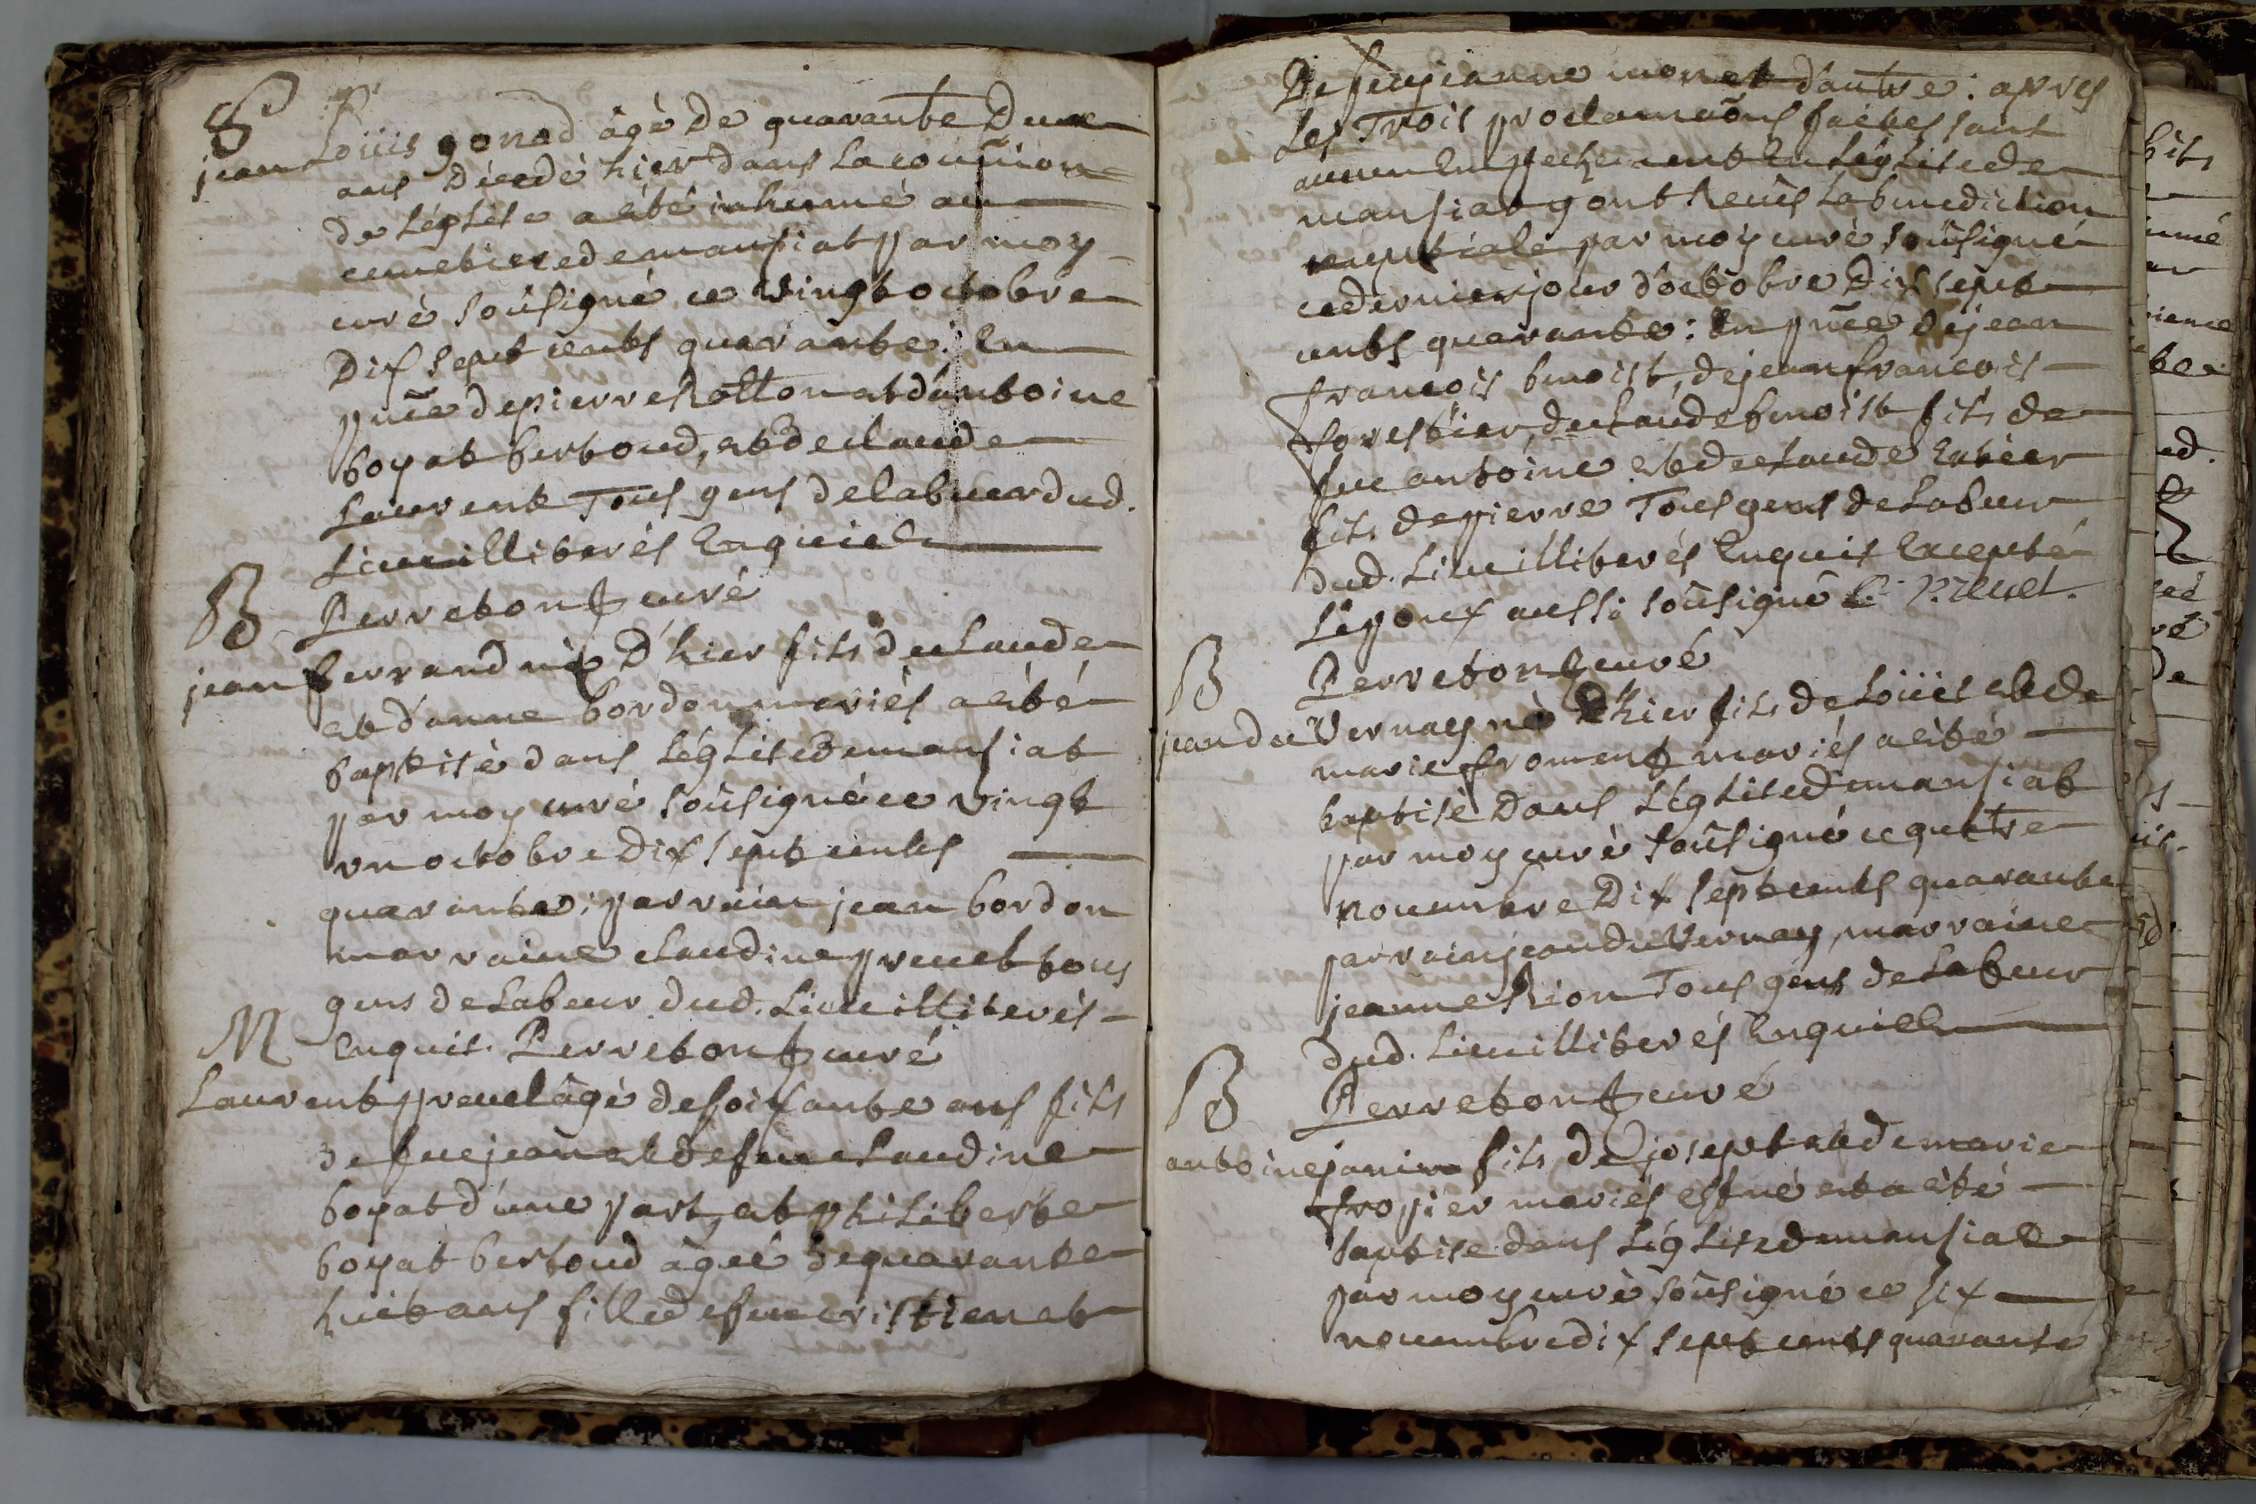 S
jean Loüis gonod âgé De quarante Deux
ans Décedé hier dans La coûmion
de Léglise a eté inhumé au
cimetiere de mansiat par moy
curé soûsigné ce vingt octobre
Dix sept cents quarante: En
pñce de pierre Rollon et d'antoine
boyat bertoud, et de claude
Laurent Tous gens de labeur dud.
Lieu illiterés Enquiels
Perreton f curé
B
jean ferrand né D'hier fils de claude
et d'anne bordon mariés a eté
baptisé dans Léglise de mansiat
par moy curé soûsigné ce vingt
vn octobre Dix sept cents
quarante: parrain jean bordon
marraine claudine preuel tous
gens de Labeur dud. Lieu illiterés
Enquis. Perreton f curé
M
Laurent preuel âgé de soixante ans fils
de feu jean et de feue claudine
boyat d'une part, et philiberte
boyat bertoud âgée de quarante
huit ans fille de feu cristien et
De feue jeanne monet d'autre: apres
Les Trois proclamaôns faites sans
aucun Empechement En Léglise de
mansiat y ont Receus La benediction
nuptiale par moy curé soûsigné
ce dernier jour d'octobre Dix sept
cents quarante: En pñce de jean
francois benoist, de jean francois
forestier, de claude benoist fils de
feu antoine et de claude
fils de pierre Tous gens de Labeur
dud. Lieu illiterés Enquis Excepté
L'époux aussi soûsigné L. Preuel.
Perreton f curé
B
jean du Vernay né D'hier fils de Loüis et de
marie froment mariés a eté
baptisé Dans Léglise de mansiat
par moy curé soûsigné ce quatre
nouembre Dix sept cents quarante
parrain jean du Vernay, marraine
jeanne Rion Tous gens de Labeur
dud. Lieu illiterés Enquiels
Perreton f curé
B
antoine janin fils de joseph et de marie
fropier mariés est né et a eté
baptisé dans Léglise de mansiat
par moy curé soûsigné ce six
nouembre dix sept cents quarante